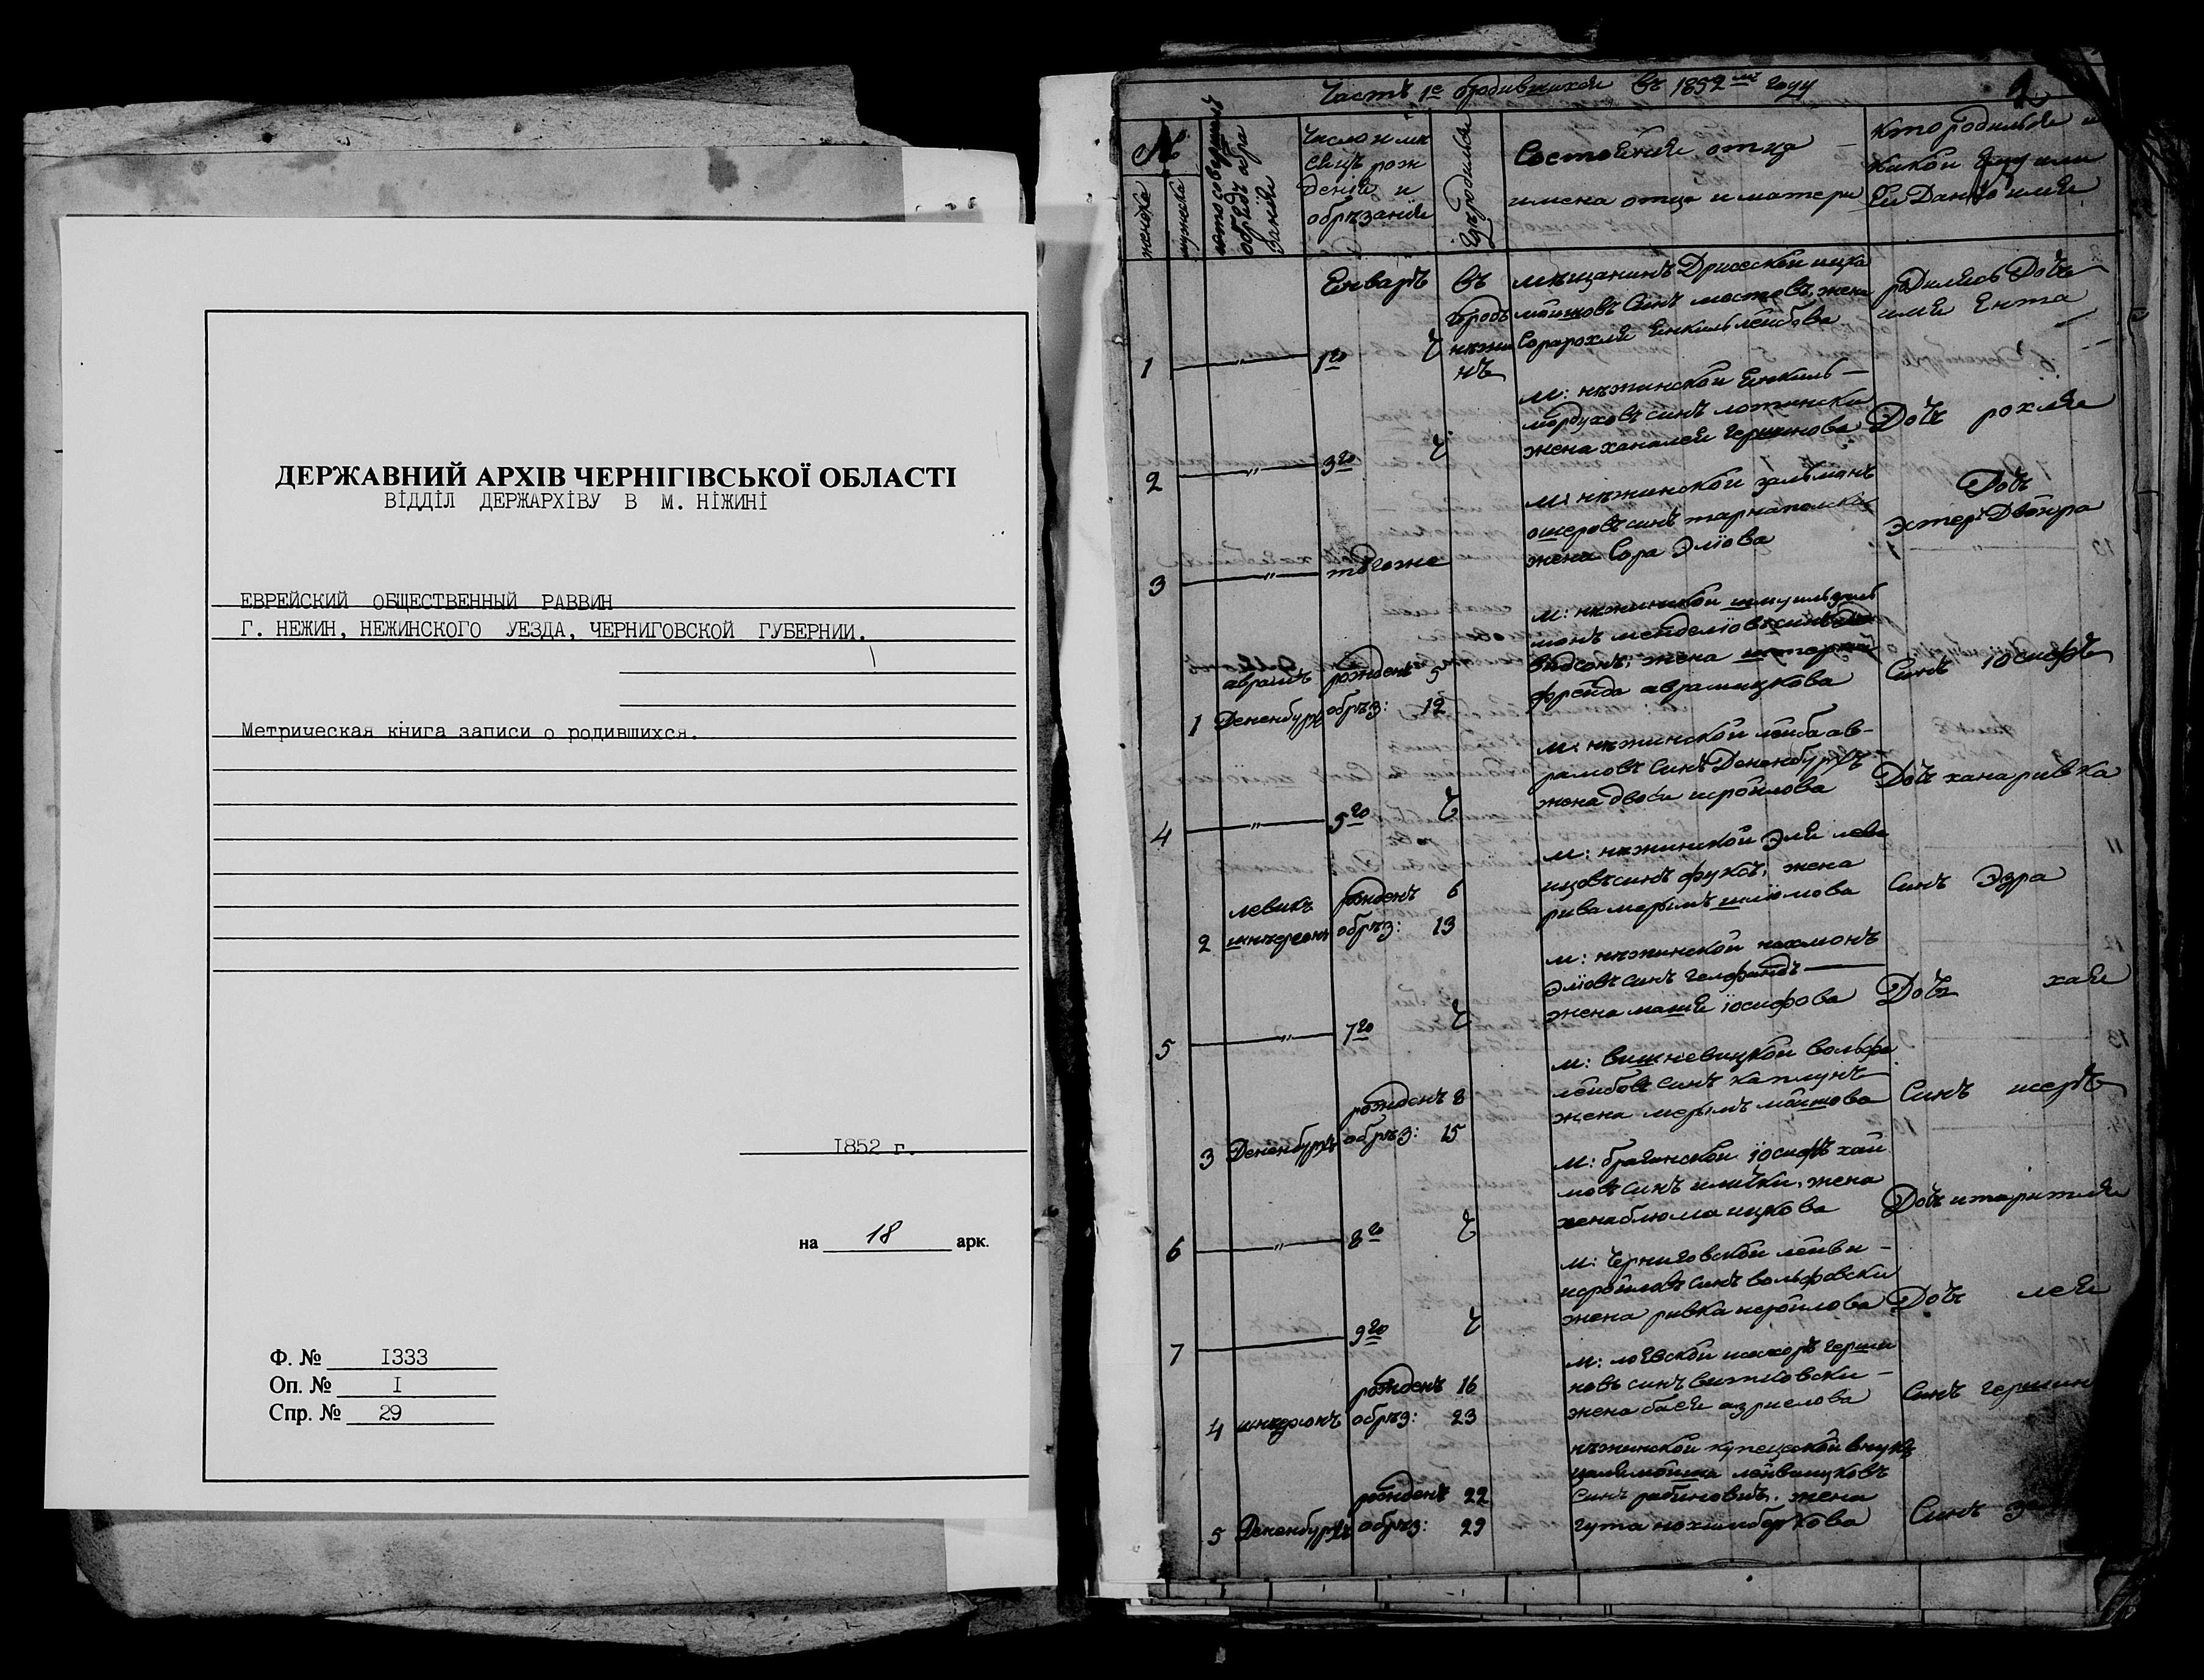 ДЕРЖАВНИЙ АРХІВ ЧЕРНІГІВСЬКОЇ ОБЛАСТІ
ВІДДІЛ ДЕРЖАРХІВУ В М. НІЖИНІ
ЕВРЕЙСКИЙ ОБЩЕСТВЕННЫЙ РАВВИН
Г. НЕЖИН, НЕЖИНСКОГО УЕЗДА, ЧЕРНИГОВСКОЙ ГУБЕРНИИ.
Метрическая книга записи о родившихся.
1852 г.
на 18 арк.
Ф. № 1333
Оп. № 1
Спр. № 29
Часть 1е въ 1852мъ году
№
женска
мужеска
Число и мѣ
сяцъ рож
денія и
обрѣзанія
Состоянія отца
имена отца и матери
кто родился и
какой ему или
ей Данно имя
Енваръ
въ
городѣ
нѣжи
нѣ
1
1го
мѣщанинъ Дрисской ицка
жена
родилась Дочь
имя Ента
2
3го
м: нѣжинской Енкиль
мордуховъ синъ
жена ханалея Гершнова
Дочь рохля
3
тогоже
м: нѣжинской зальмонъ
ошеровъ синъ тарнапольски
жена Сора Эліова
Дочь
Эстер Двойра
1
аврамъ
Дененбургъ
рожденъ 5
обрѣз: 12
м: нѣжинской шмуильзаль
монъ менделіовъ синъ
жена
фрейда аврамицкова
Синъ Іосифъ
4
5го
м: нѣжинской лейба ав-
рамовъ синъ Дененбургъ
жена двоси исройлова
Дочь ханаривка
2
левикъ
рожденъ 6
обрѣз: 13
м: нѣжинской Эля левъ
ицовъ синъ фуксъ, жена
рива мерымъ шліомова
Синъ Эзра
5
7го
м: нѣжинской нахмонъ
Эліовъ синъ гелфандъ
жена машя іосифова
Дочь хая
3
Дененбургъ
рожденъ 8
обрѣз: 15
м: вишневицкой вольфъ
лейбовъ синъ каплунъ
жена мерымъ мойшова
Синъ
6
8го
м: брагинской іосифъ хаи
мовъ синъ жена
хенаблюма ицкова
Дочь
7
9го
м: Черниговской лейви
исройловъ синъ вольфовски
жена ривка исройлова
Дочь лея
4
рожденъ 16
обрѣз: 23
м: лоевской герш
новъ синъ витковски
жена бася азриелова
Синъ гершн
5
Дененбургъ
рожденъ 22
обрѣз: 29
нѣжинской купецской внукъ
лейвицковъ
синъ рабиновичъ. жена
гута нохимберкова
Синъ